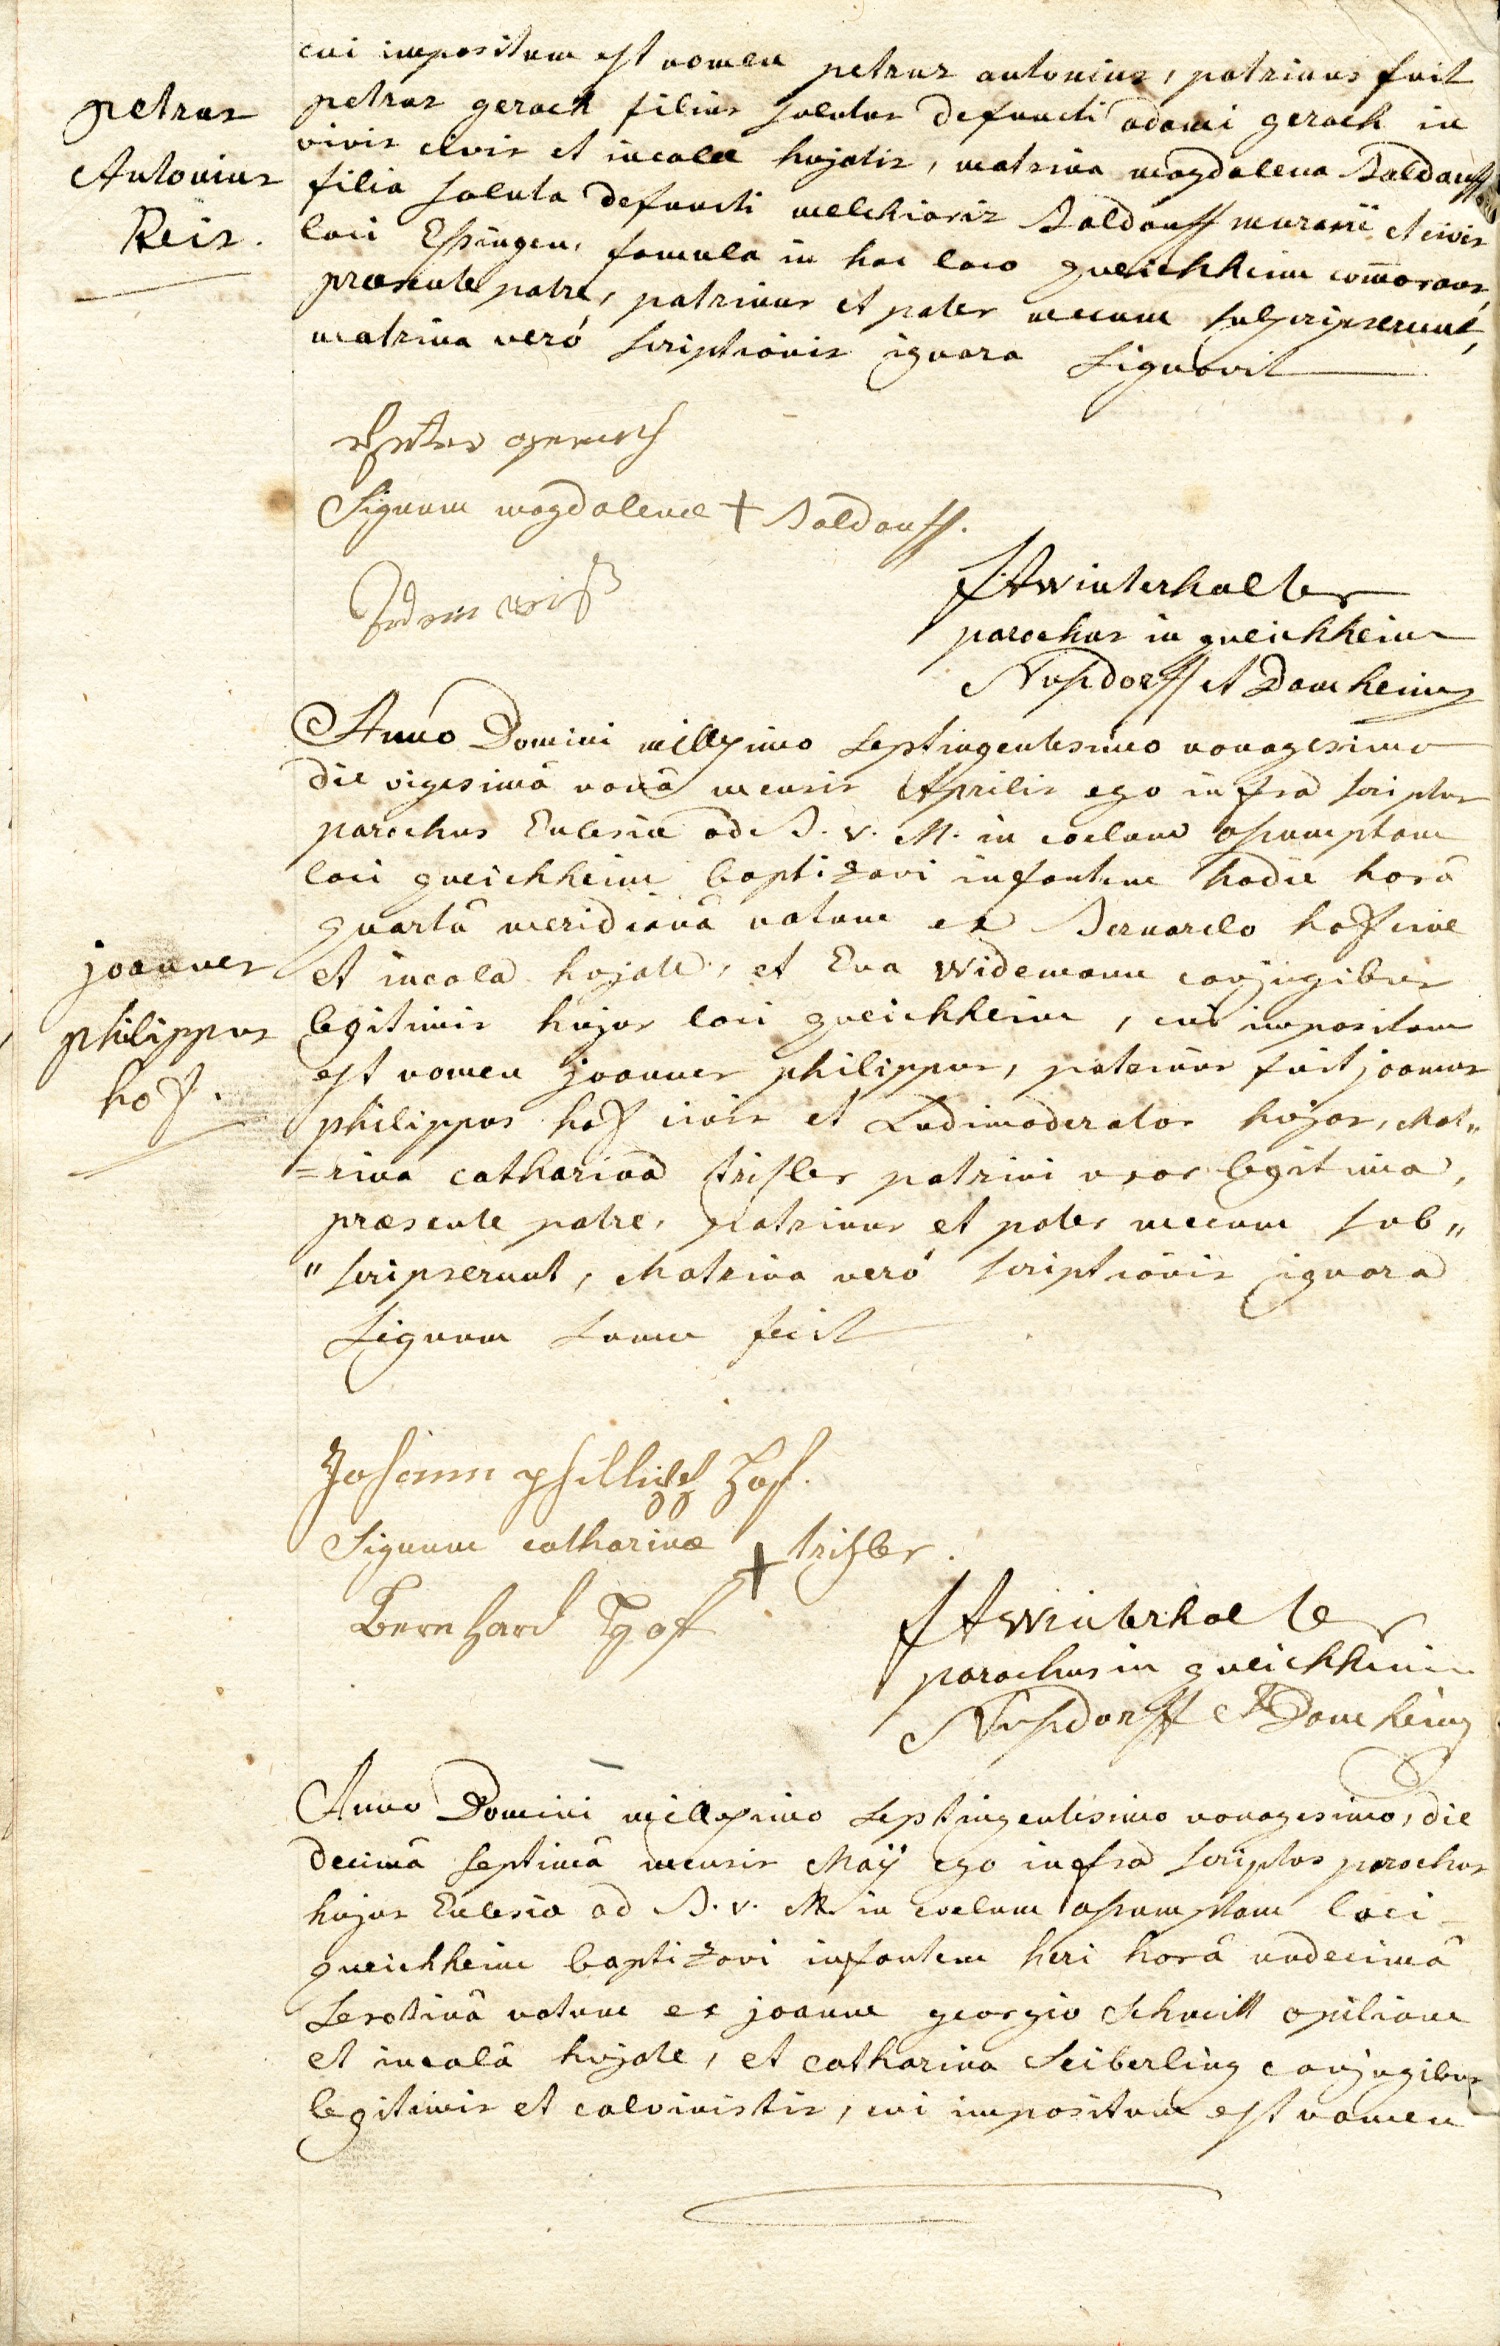 cui impositum est nomen petrus antonius, patrinus fuit
petrus gerach filius solutus defuncti adami gerach in
vivis civis et incolæ hujatis, matrina magdalena Baldauff
filia soluta defuncti melchioris Baldauff murarii et civis
loci Essingen, famula in hoc loco queichheim com̄orans,
præsente patre, patrinus et pater mecum subscripserunt,
matrina veró scriptionis ignara signavit
petrus
Antonius
Reis.
Peter gerach
Signum magdalenæ + Baldauff.
Adam
FA Winterhalter
parochus in queichheim
Nusdorff et Damheim
Anno Domini millesimo septingentesimo nonagesimo
die vigesimâ nonâ mensis Aprilis ego infra scriptus
parochus Eclesiæ ad B. v. M. in coelum assumptam
loci queichheim baptizavi infantem hodie horâ
quartâ meridianâ natum ex Bernardo hoff cive
et incola hujate, et Eva Widemann conjugibus
legitimis hujus loci queichheim, cui impositum
est nomen joannes philippus, patrinus fuit joannes
philippus hoff civis et Ludimoderator hujas, Mat„
=rina catharina trisler patrini uxor legitima,
præsente patre, patrinus et pater mecum sub„
„scripserunt, Matrina veró scriptionis ignara
signum suum fecit
joannes
philippus
hoff.
Johann phillips Hof.
Signum catharinæ + trisler.
Bernhard Hof
FA Winterhalter
parochus in queichheim
Nusdorff et Damheim
Anno Domini millesimo septingentesimo nonagesimo, die
decimâ septimâ mensis Maÿ ego infra scriptus parochus
hujus Eclesiæ ad B. v. M. in coelum assumptam loci
queichheim baptizavi infantem heri horâ undecimâ
serotinâ natum ex joanne georgio Schmitt opilione
et incolâ hujate, et catharina Seiberling conjugibus
legitimis et calvinistis, cui impositum est nomen